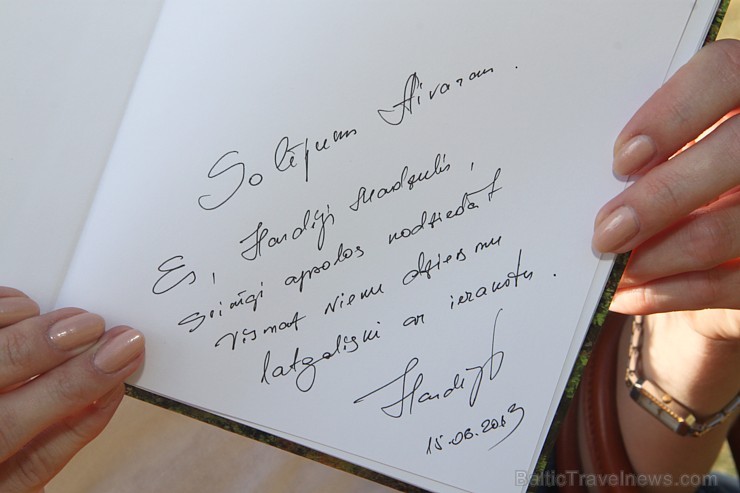 Solījums Aivaram.
Es, Hardijs Madzulis,
svinīgi apsolos nodziedāt
vismaz vienu dziesmu
latgaliski ar ierakstu.
Hardijs
15.08.2013
BalticTravelnews.com